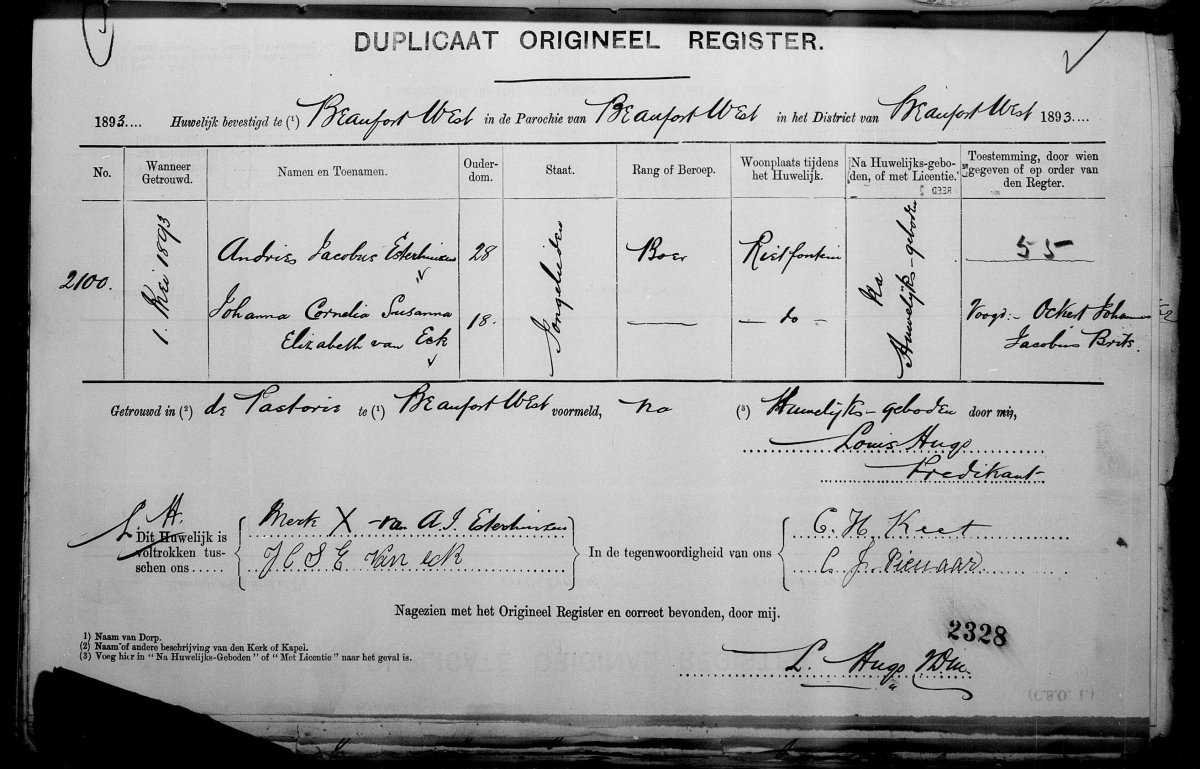 DUPLICAAT ORIGINEEL REGISTER.
1893.... Huwelijk bevestigd te (¹) Beaufort West in de Parochie van Beaufort West in het District van Beaufort West 1893....
No.
Wanneer Getrouwd.
Namen en Toenamen.
Ouder-dom.
Staat.
Rang of Beroep.
Woonplaats tijdens het Huwelijk.
Na Huwelijks-gebo-den, of met Licentie.
Toestemming, door wien gegeven of op order van den Regter.
2100.
1. Mei 1893
Andries Jacobus Esterhuizen
28
Jongelieden
Boer
Rietfontein
Na Huwelijks-geboden
55
Johanna Cornelia Susanna
Elizabeth van Eck
18.
— do —
Voogd:- Ockert Johannes
Jacobus Brits.
Getrouwd in (²) de Pastorie te (¹) Beaufort West voormeld, na (³) Huwelijks-geboden door mij,
Louis Hugo
Predikant
L. H.
Dit Huwelijk is
voltrokken tus-
schen ons .....
Merk X van A. J. Esterhuizen
J C S E van eck
In de tegenwoordigheid van ons
C. H. Keet
C. J. Pienaar
Nagezien met het Origineel Register en correct bevonden, door mij.
1) Naam van Dorp.
(2) Naam of andere beschrijving van den Kerk of Kapel.
(3) Voeg hier in "Na Huwelijks-Geboden" of "Met Licentie" naar het geval is.
2328
L. Hugo VDM.